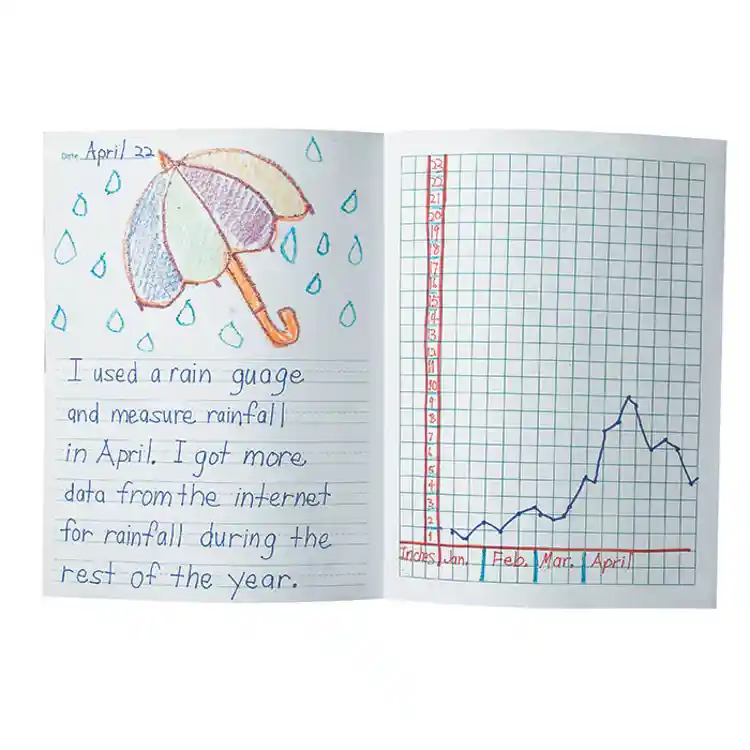 Date April 22
I used a rain guage
and measure rainfall
in April. I got more
data from the internet
for rainfall during the
rest of the year.
22
22
21
20
19
18
17
16
15
14
13
12
11
10
9
8
7
6
5
4
3
2
1
Inches Jan. Feb. Mar. April